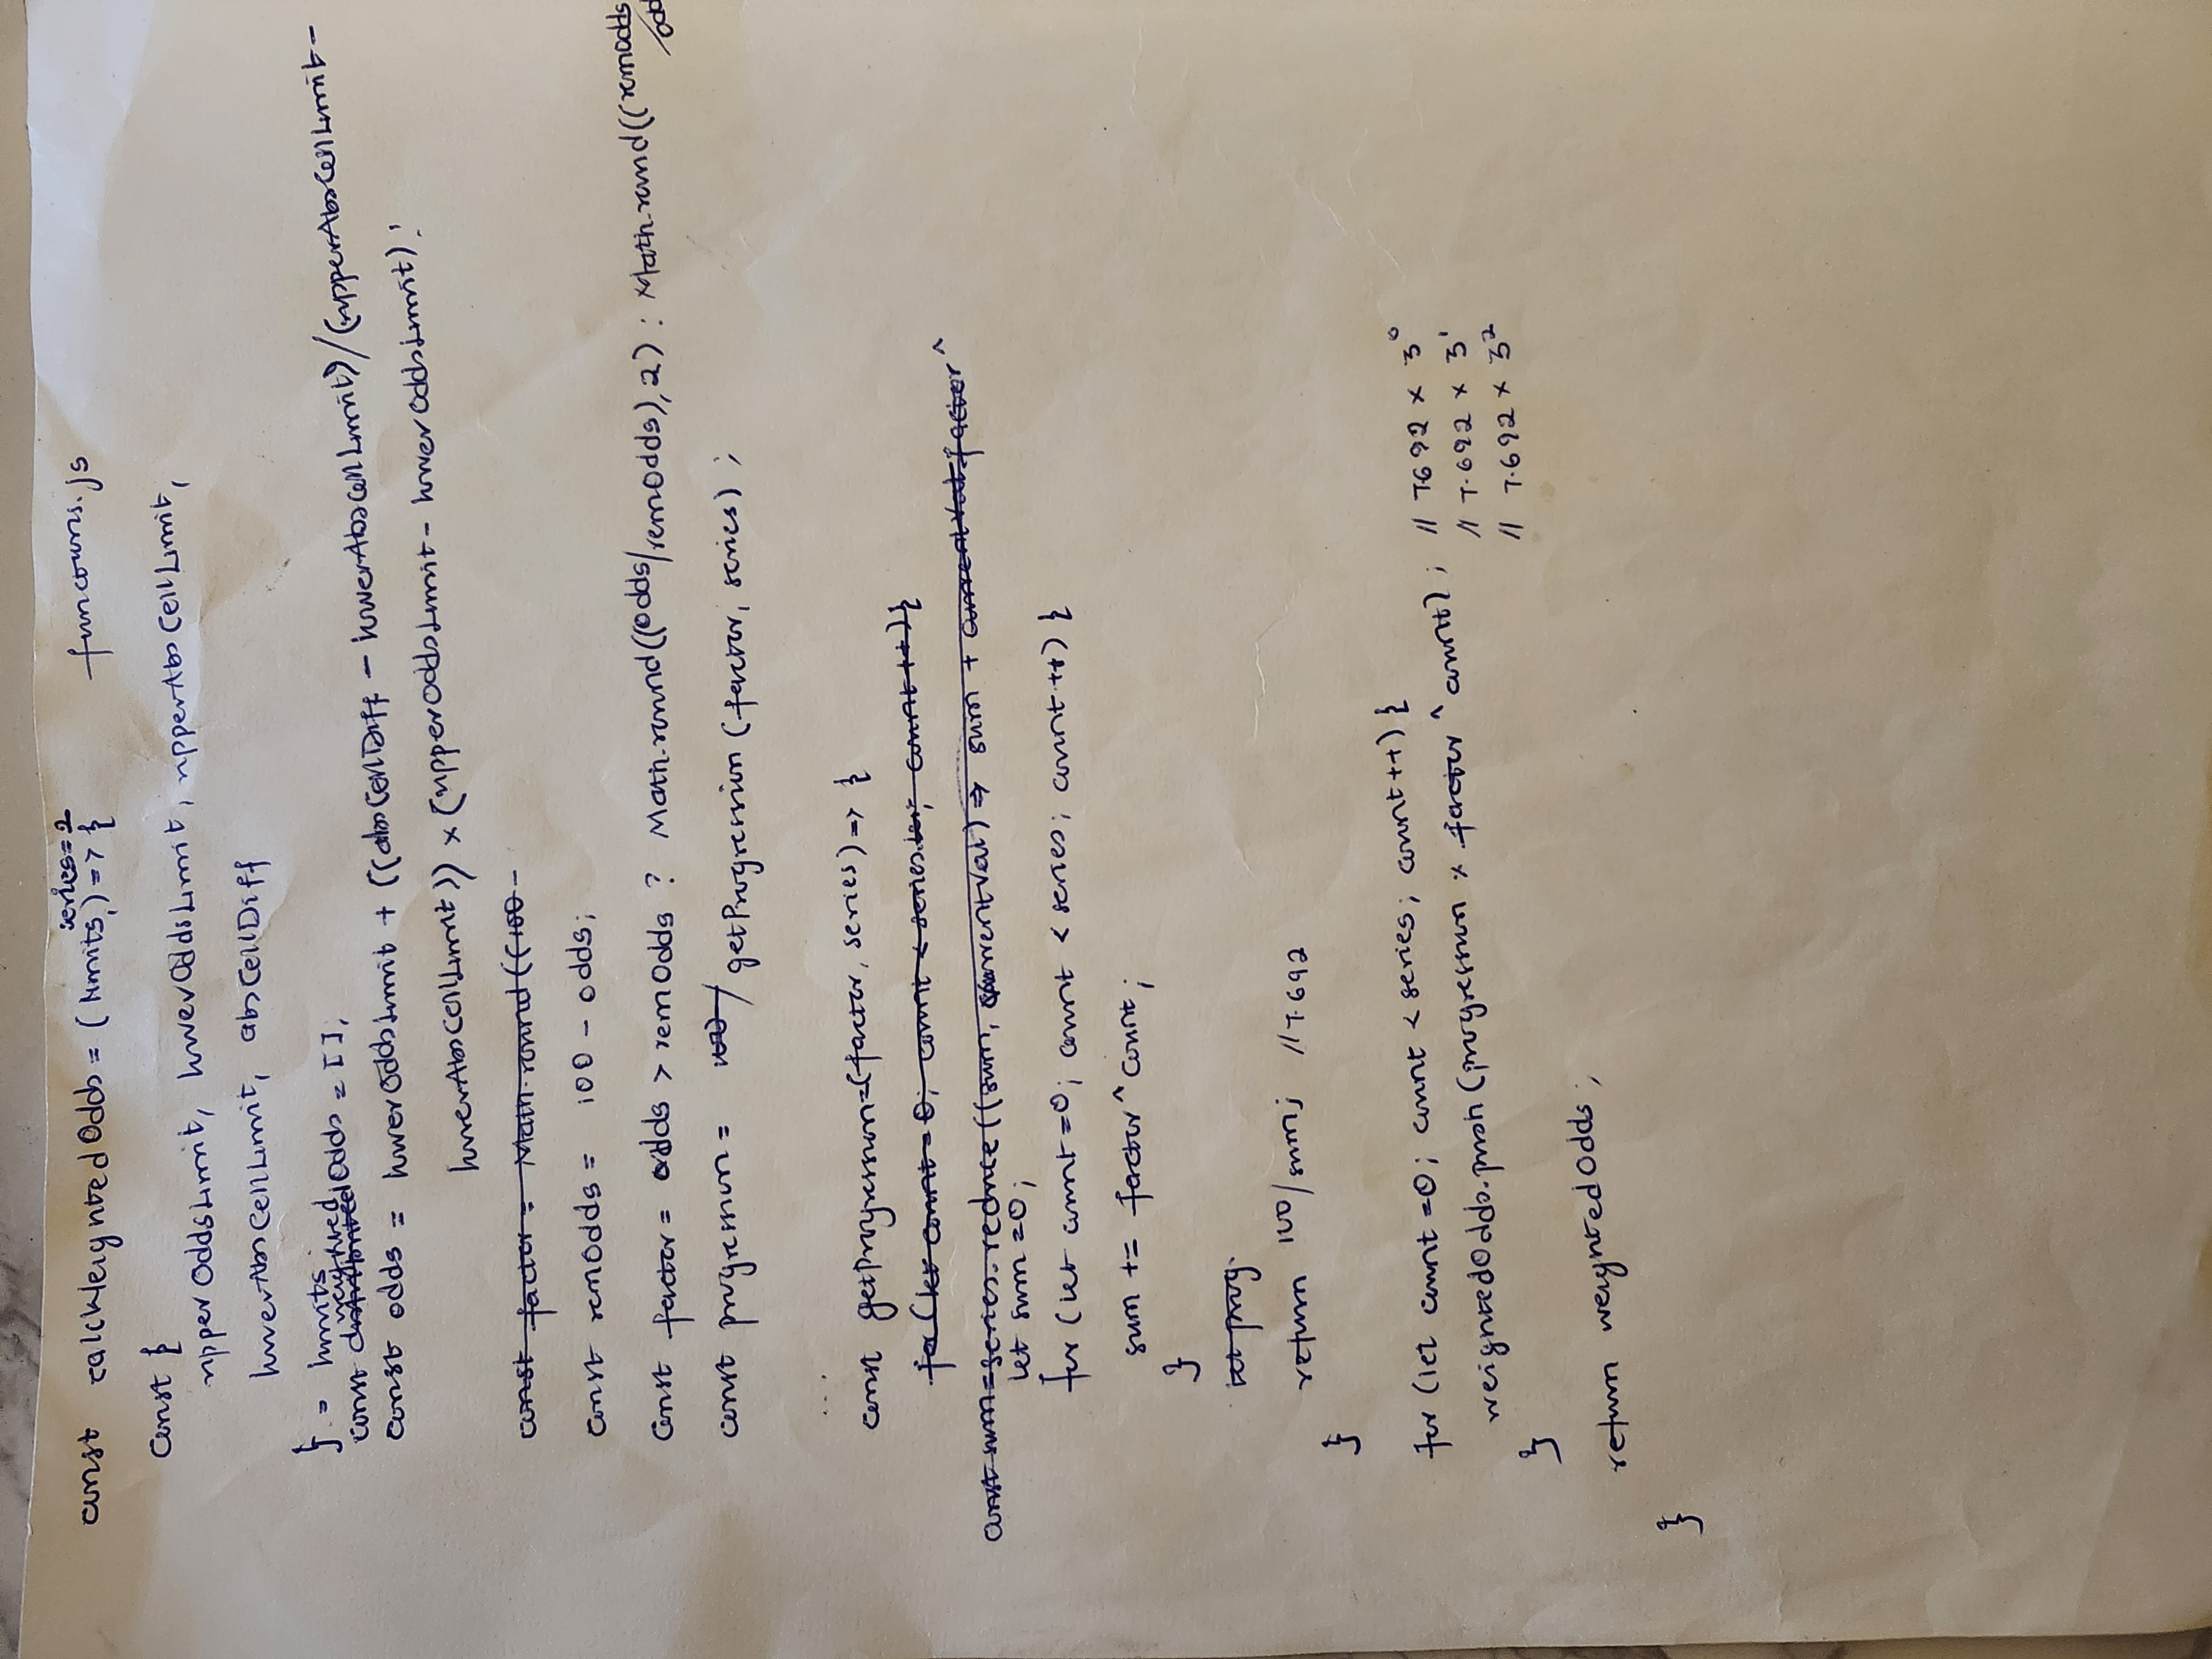 const calcWeightedOdds = (limits, series=2) => { functions.js
const {
upperOddsLimit, lowerOddsLimit, upperAbsCellLimit,
lowerAbsCellLimit, absCellDiff
} = limits
const distributed weightedOdds = [];
const odds = lowerOddsLimit + ((absCellDiff - lowerAbsCellLimit)/(upperAbsCellLimit -
lowerAbsCellLimit)) × (upperOddsLimit - lowerOddsLimit);
const factor = Math.round((100 -
const remOdds = 100 - odds;
const factor = odds > remOdds ? Math.round((odds/remOdds), 2) : Math.round((remOdds
/odd
const progression = 100/ getProgression (factor, series) ;
...
const getProgression=(factor, series) => {
for (let count = 0; count < series.len; count ++) {
const sum = series.reduce((sum, currentVal) => sum + currentVal factor ^
let sum = 0;
for (let count=0; count < series; count ++) {
sum += factor ^ count;
}
let prog.
return 100/sum; //7.692
}
for (let count =0; count < series; count ++) {
weightedOdds.push (progression × factor ^ count) ; // 7.692 × 3⁰
// 7.692 × 3¹
// 7.692 × 3²
}
return weightedOdds ;
}